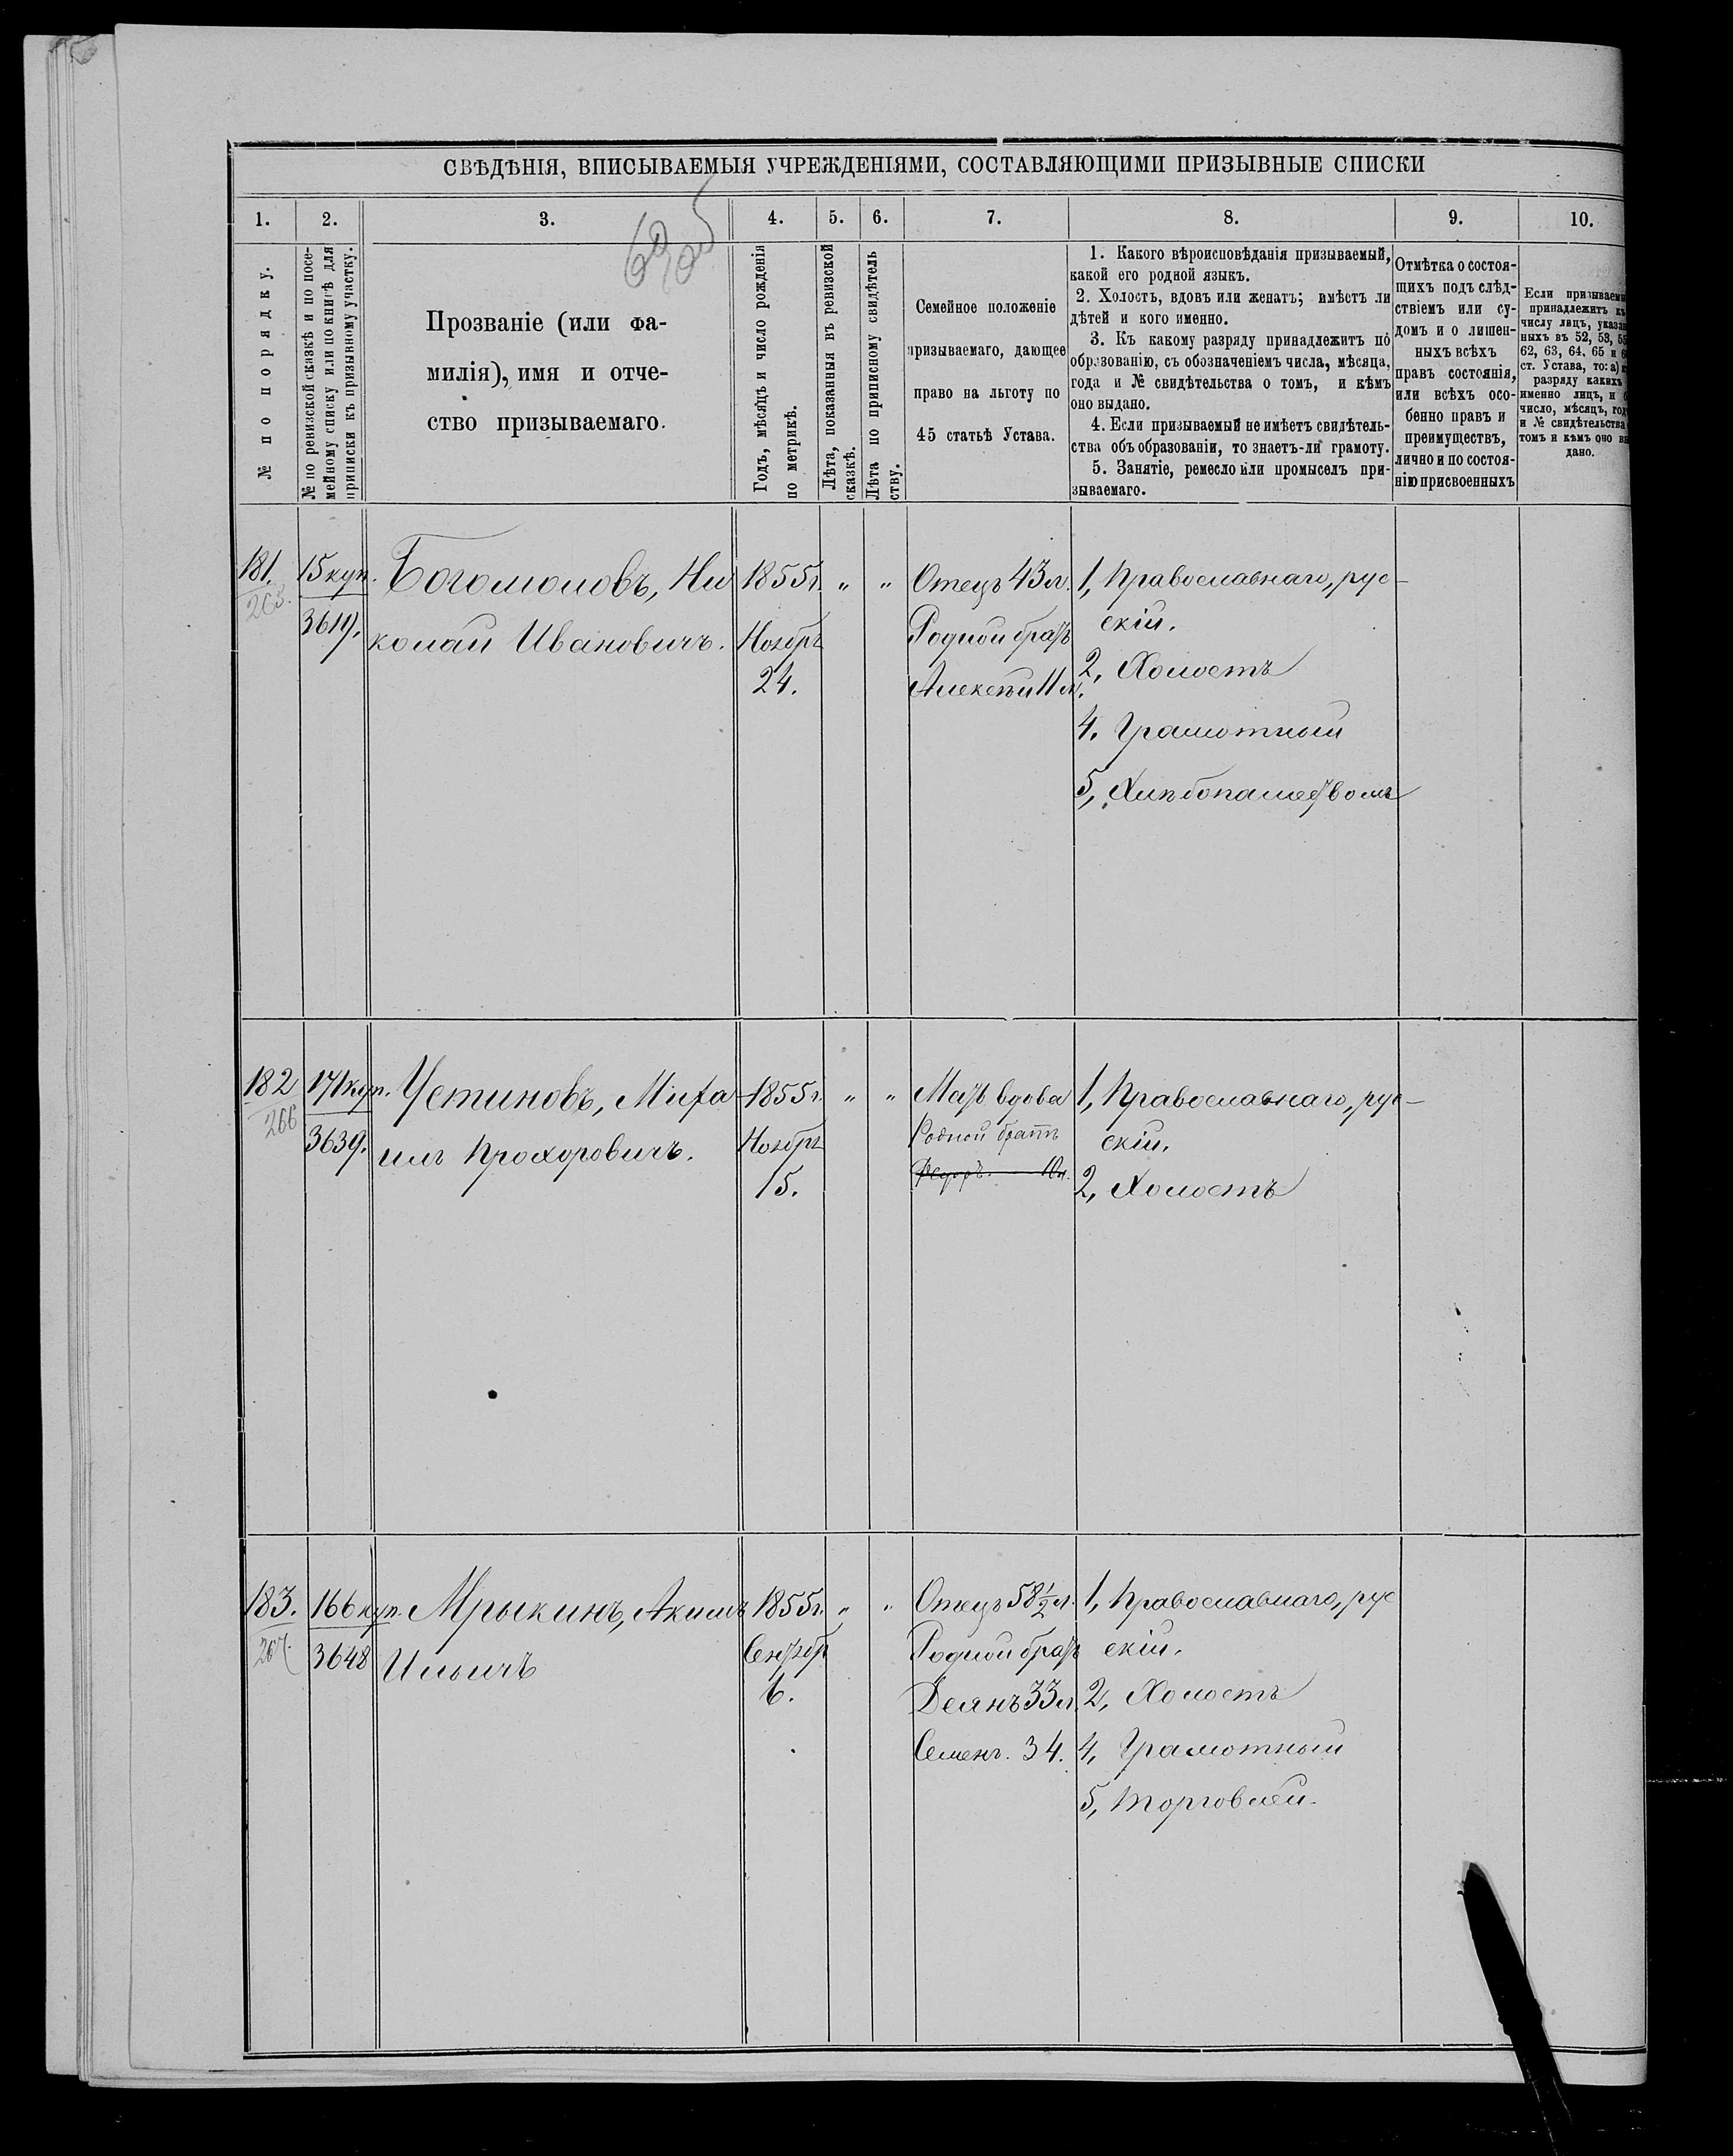 СВѢДѢНІЯ, ВПИСЫВАЕМЫЯ УЧРЕЖДЕНІЯМИ, СОСТАВЛЯЮЩИМИ ПРИЗЫВНЫЕ СПИСКИ
1.
2.
3.
4.
5.
6.
7.
8.
9.
10.
№ по порядку.
№ по ревизской сказкѣ и по посе-
мейному списку или по книгѣ для
приписки къ призывному участку.
Прозваніе (или фа-
милія), имя и отче-
ство призываемаго.
Годъ, мѣсяцъ и число рожденія
по метрикѣ.
Лѣта, показанныя въ ревизской
сказкѣ.
Лѣта по приписному свидѣтель
ству.
Семейное положеніе
призываемаго, дающее
право на льготу по
45 статьѣ Устава.
1. Какого вѣроисповѣданія призываемый,
какой его родной языкъ.
2. Холостъ, вдовъ или женатъ; имѣетъ ли
дѣтей и кого именно.
3. Къ какому разряду принадлежитъ по
образованію, съ обозначеніемъ числа, мѣсяца,
года и № свидѣтельства о томъ, и кѣмъ
оно выдано.
4. Если призываемый не имѣетъ свидѣтель-
ства объ образованіи, то знаетъ-ли грамоту.
5. Занятіе, ремесло или промыселъ при-
зываемаго.
Отмѣтка о состоя-
щихъ подъ слѣд-
ствіемъ или су-
домъ и о лишен-
ныхъ всѣхъ
правъ состоянія,
или всѣхъ осо-
бенно правъ и
преимуществъ,
лично и по состоя-
нію присвоенныхъ
Если призываемы
принадлежитъ къ
числу лицъ, указан
ныхъ въ 52, 53,
62, 63, 64, 65 и
ст. Устава, то: а)
разряду какихъ
именно лицъ, и
число, мѣсяцъ, год
и № свидѣтельства
томъ и кѣмъ оно вы
дано.
181.
15 куп.
3619.
Богомоловъ, Ни
колай Ивановичъ.
1855 г.
Ноябрь
24.
„
„
Отецъ 43 л.
Родной братъ
Алексѣй 11 л.
1, Православнаго, рус-
скій.
2, Холостъ
4. Грамотный
5, Хлѣбопашествомъ
182
266
171 куп.
3639.
Устиновъ, Миха-
илъ Прохоровичъ.
1855 г.
Ноябрь
15.
„
„
Мать вдова
Родной братъ
Ѳедоръ 10 л.
1, Православнаго, рус-
скій.
2, Холостъ
183.
267.
166 куп.
3648
Мрыкинъ, Акимъ
Ильичъ
1855 г.
Сентябр
6.
„
„
Отецъ 58 ½ л.
Родной братъ
Деянъ 33 л.
Семенъ. 34.
1, Православнаго, рус
скій.
2, Холостъ
4, Грамотный
5, Торговлей